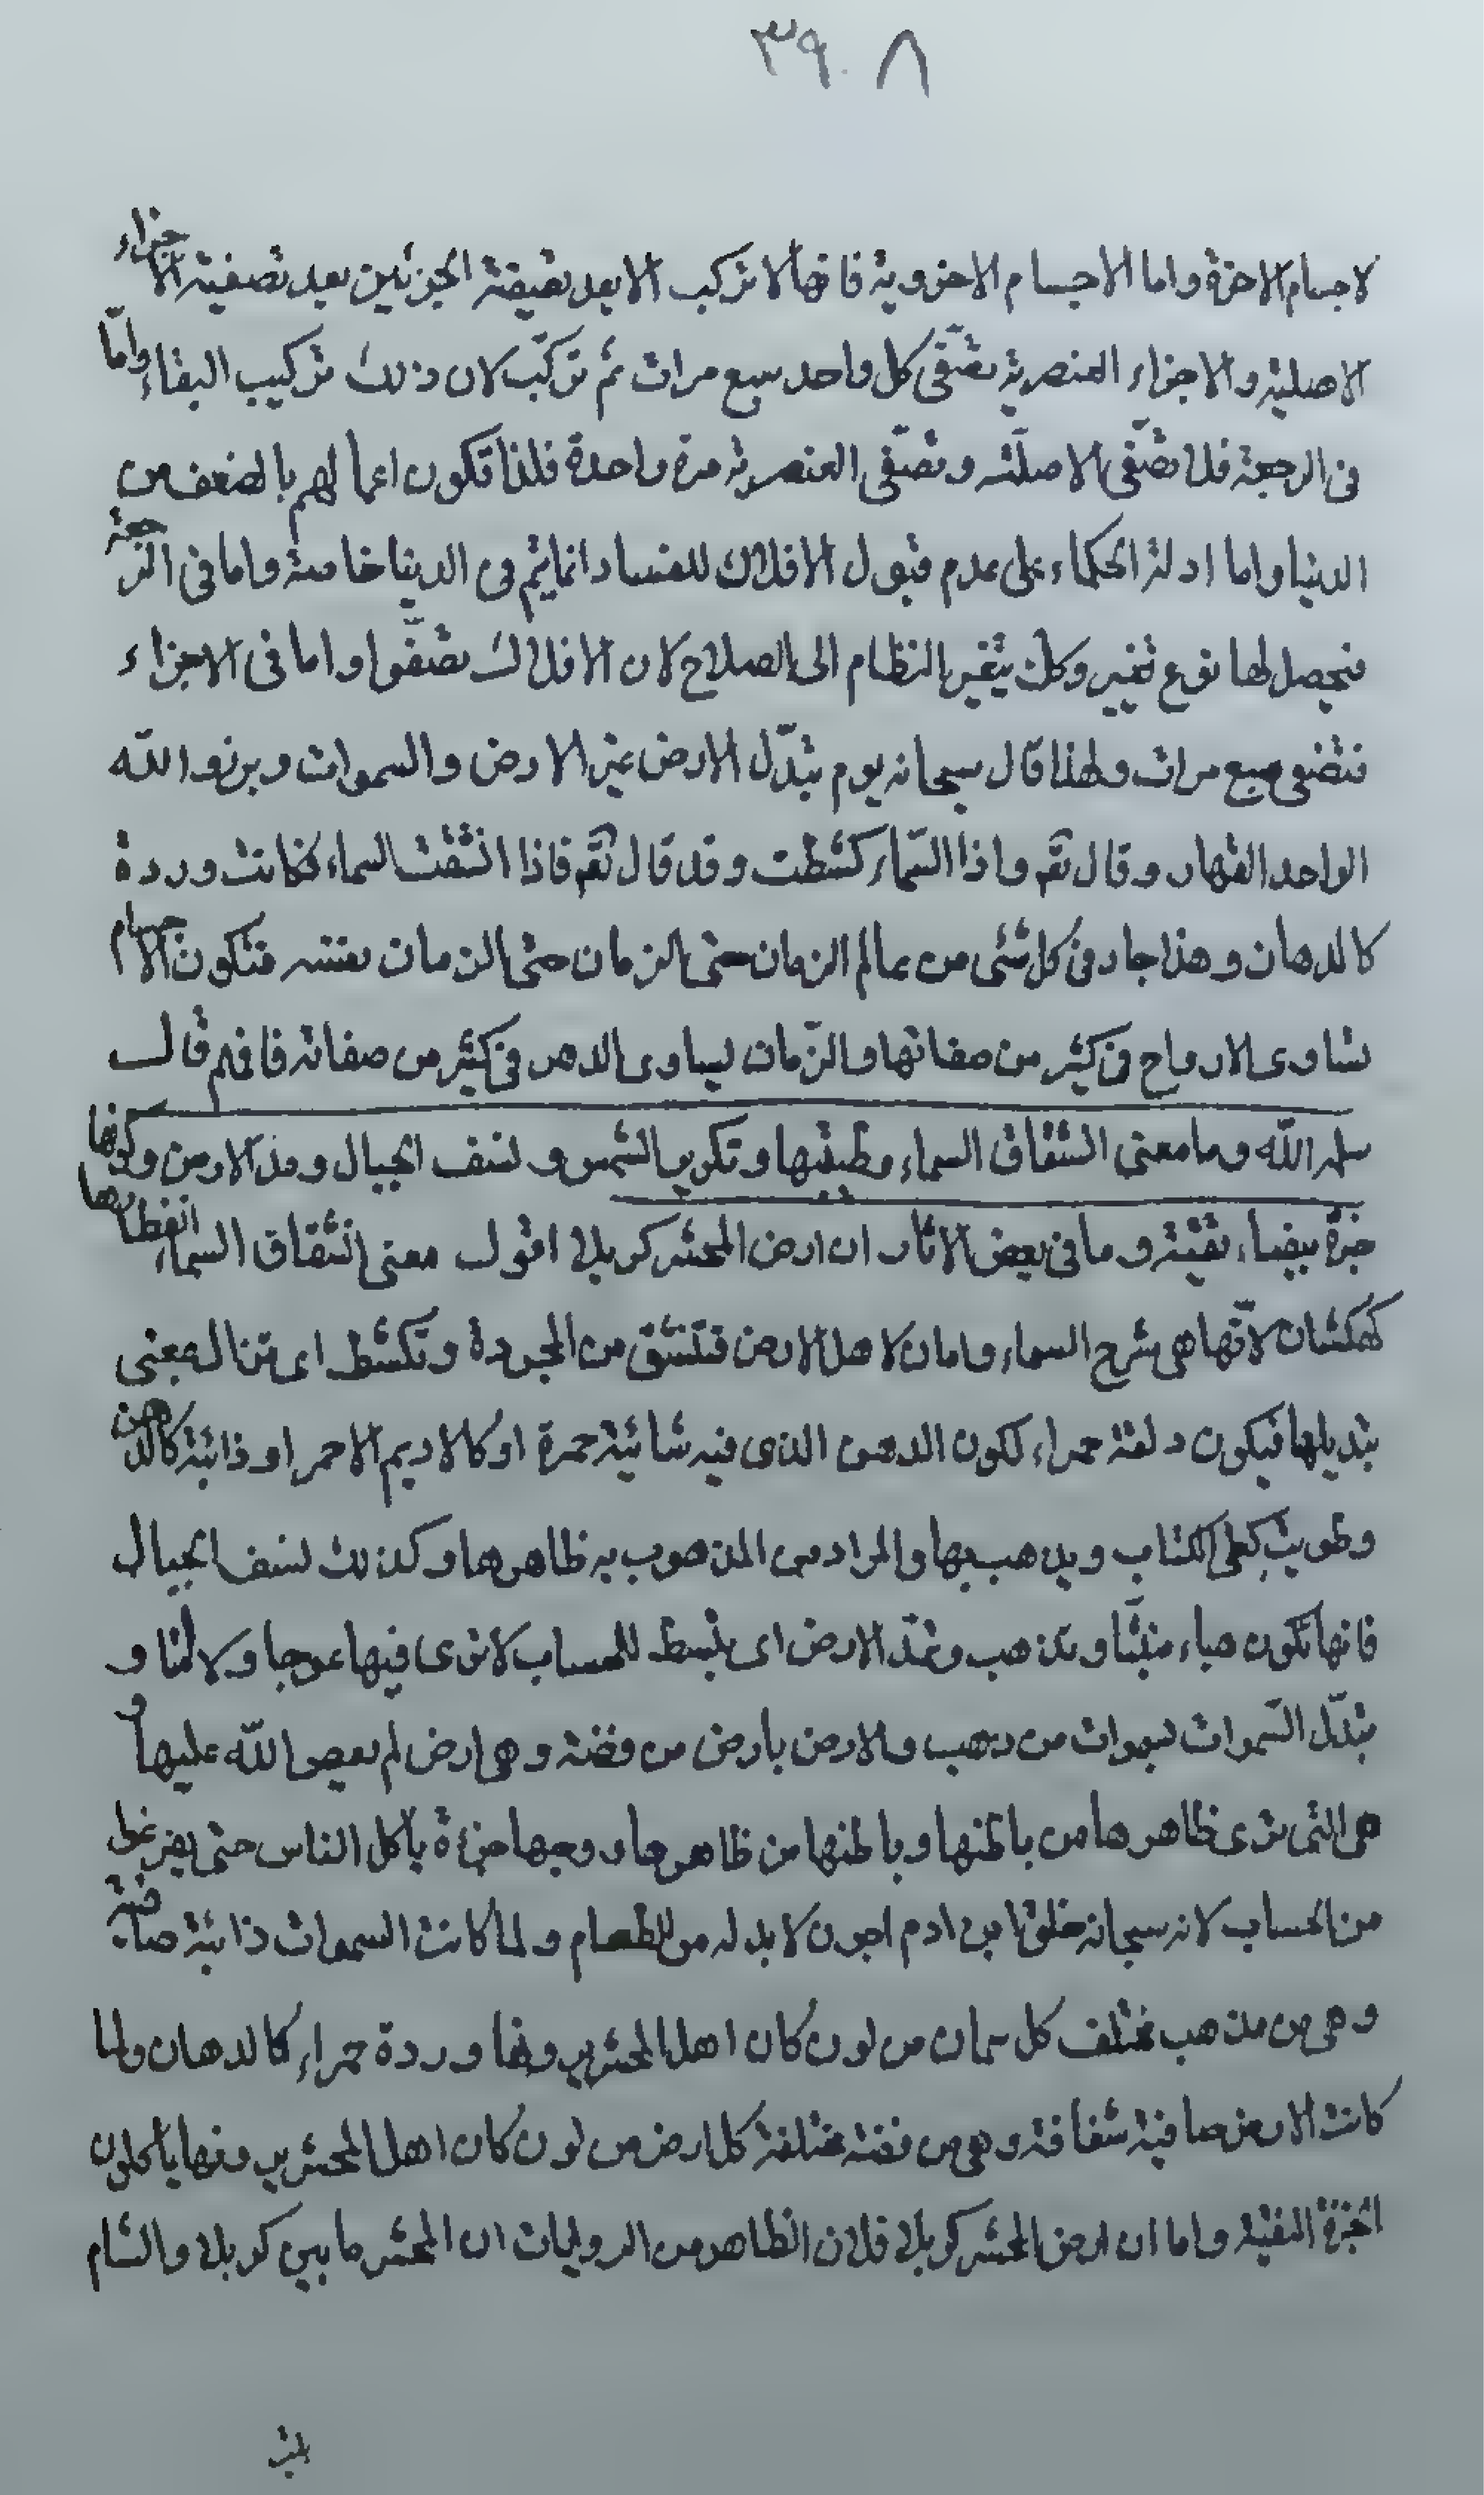 ٣٩٠٨
لاجسام الاخرة واما الاجسام الاخروية فانها لا تركب الا بعد تصفية الجزئين بعد تصفية الاجزاء
الاصلية والاجزاء العنصرية تصفى كل واحد سبع مرات ثم تركّب لان ذلك تركيب البقاء وامّا
فى الرجعة فلا تصفّى الاصلية وتصفّى العنصرية مرة واحدة فلذا تكون اعمالهم بالضعف من
الدنيا واما ادلة الحكماء على عدم قبول الافلاك للفساد انما يتم فى الدنيا خاصة واما فى الرجعة
فيحصل لها نوع تغيير وكل يتغير النظام الى الصلاح لان الافلاك تصفّوا واما فى الاجزاء
فتصفى سبع مرات ولهذا قال سبحانه يوم تبدّل الارض غير الارض والسموات وبرزوا لله
الواحد القهار وقال تع واذا السّماء كشطت وقد قال تع فاذا انشقت السماء فكانت وردة
كالدهان وهذا جار فى كل شئ من عالم الزمان حتى الزمان حتى الزمان نفسه فتكون الاجسام
تساوى الارواح فى كثير من صفاتها والزّمان يساوى الدهر فى كثير من صفاته فافهم قال
سلمه الله وما معنى انشقاق السماء وطيّها وتكوير الشمس ونسف الجبال ومدّ الارض وكونها
خبزة بيضاء نقيّة وما فى بعض الاثار ان ارض المحشر كربلا اقول معنى انشقاق السماء انفطارها
كهكشان لانّها هى شرح السماء وامان لاهل الارض فتنشق من المجردة وتكشط اى تزال بمعنى
تبديلها فيكون دلفة حمراء لكون الدهن الذى فيه شائبة حمرة او كالاديم الاحمر او ذائبة كالدهن
وطويت كطى الكتاب ويذهب بها والمراد من المذهوب به ظاهرها وكذلك نسف الجبال
فانها تكون هباء منبثّا وتذهب وتمدّ الارض اى يبسط للحساب لا ترى فيها عوجا ولا امتا و
تبدّل السّموات بسموات من ذهب والارض بارض من فضة وهى ارض لم يعص الله عليها و
هى التى ترى ظاهرها من باطنها وباطنها من ظاهرها ووجهها خبزة ياكل الناس حتى يفرغوا
من الحساب لانه سبحانه خلق ابن ادم اجوف لا بد له من الطعام ولما كانت السموات ذائبة صافية
وهى من مذهب مختلف كل سماء من لون كان اهل المحشر يرونها وردة حمراء كالدهان ولما
كانت الارض صافية شفافة وهى من فضة مختلفة كل ارض من لون كان اهل المحشر يرونها ياكلون
الخبزة النقيّة واما ان ارض المحشر كربلا فلان الظاهر من الروايات ان المحشر ما بين كربلا والشام